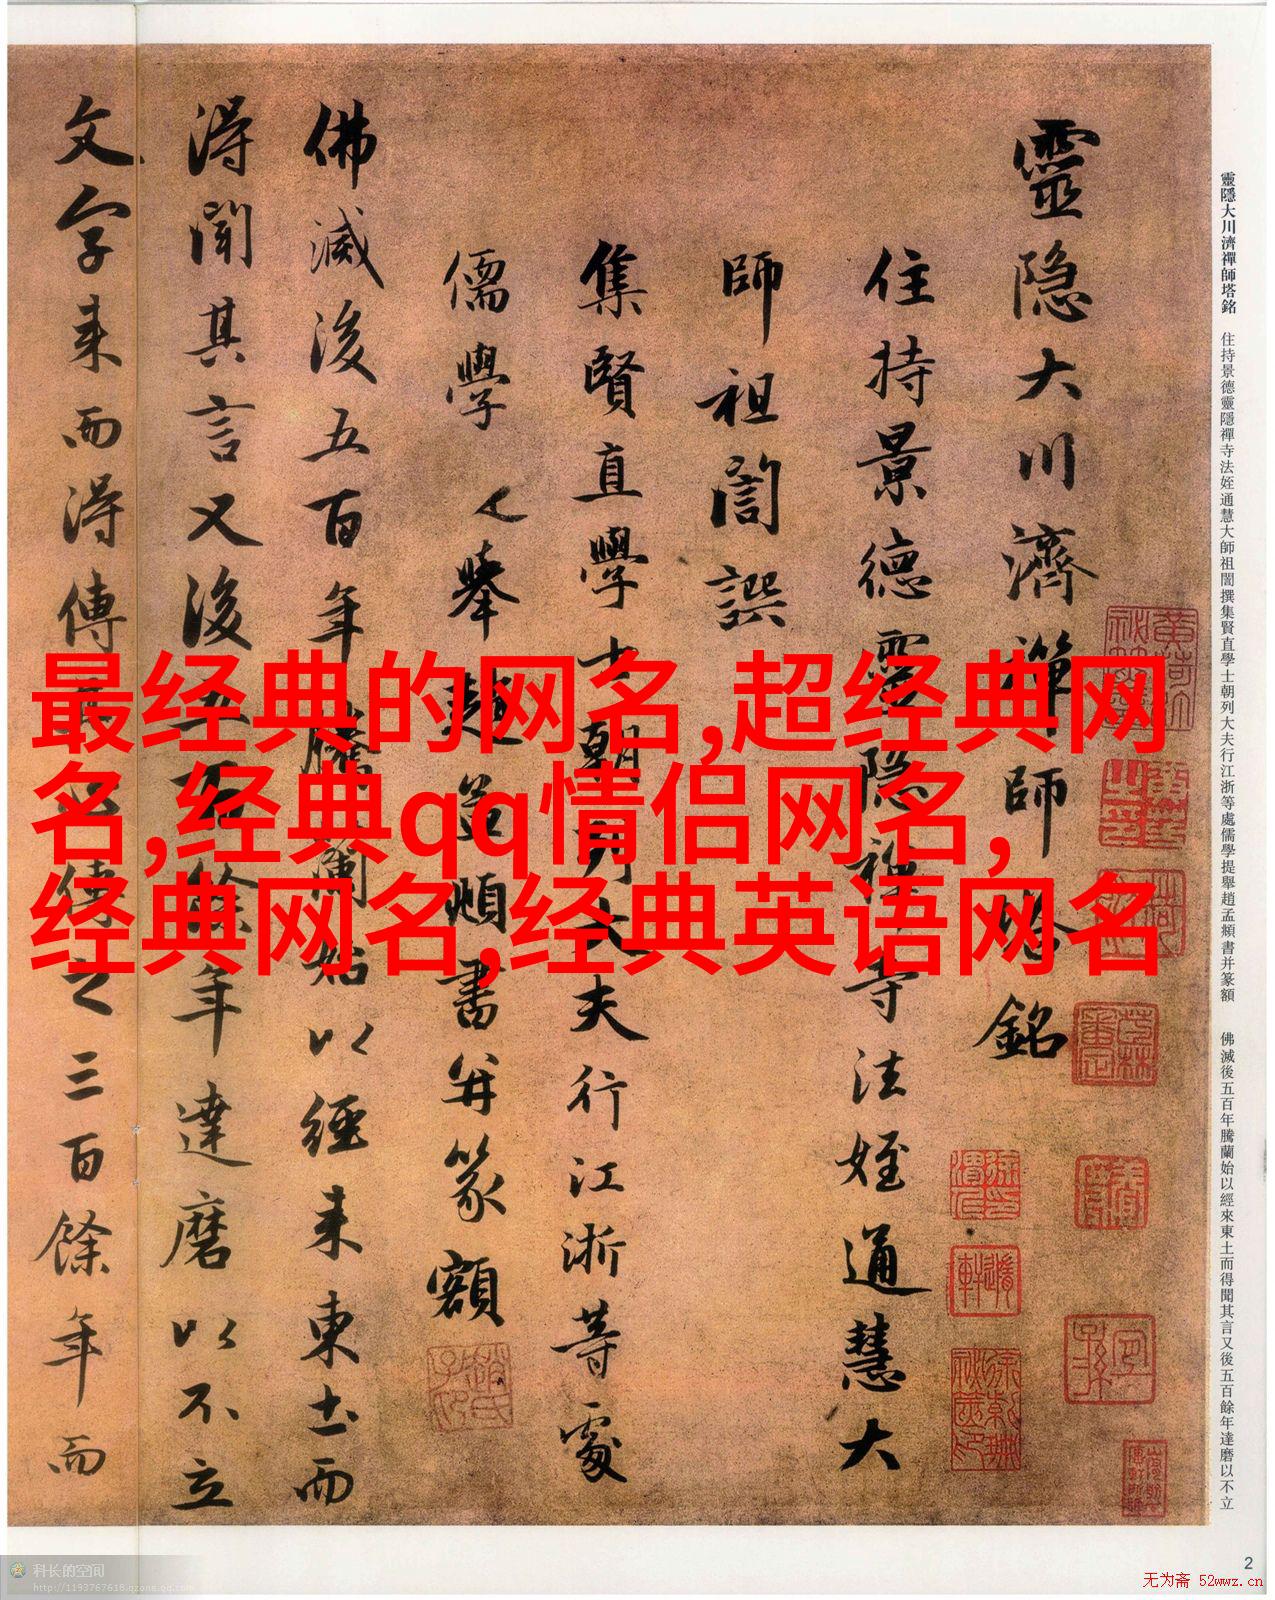 靈隱大川濟禪師塔銘 住持景德靈隱禪寺法姪通慧大師祖誾撰集賢直學士朝列大夫行江浙等處儒學提舉趙孟頫書并篆額 佛滅後五百年騰蘭始以經來東土而得聞其言又後五百餘年達磨以不立
靈隐大川濟禪師塔銘
住持景德靈隐禪寺法姪通慧大
師祖誾譔
集賢直學士朝列大夫行江浙等處
儒學提舉趙孟頫書并篆額
佛滅後五百年騰蘭始以經来東土而
得聞其言又後五百餘年達磨以不立
文字来而得傳之三百餘年而
最经典的网名,超经典网
名,经典qq情侣网名,
经典网名,经典英语网名
科长的空间
http://1193767618.qzone.qq.com
2
无为斋 52wwz.cn